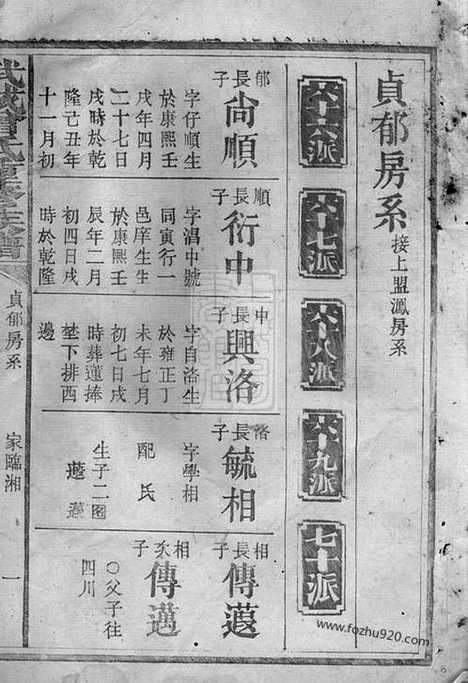 貞郁房系 接上盟鳳房系
六十六派
六十七派
六十八派
六十九派
七十派
郁長子
尙順
字仔順生
於康熙壬
戌年四月
二十七日
戌時於乾
隆己丑年
十一月初
順長子
衍中
字淐中號
同寅行一
邑庠生生
於康熙壬
辰年二月
初四日戌
時於乾隆
中長子
興洛
字自洛生
於雍正丁
未年七月
初七日戌
時葬蓮捧
埜下排西
邊
洛長子
毓相
字學相
配氏
生子二
相長子
傳蕸
相次子
傳邁
○父子往
四川
武城曾氏重修族譜
貞郁房系
家臨湘
一
www.fozhu920.com